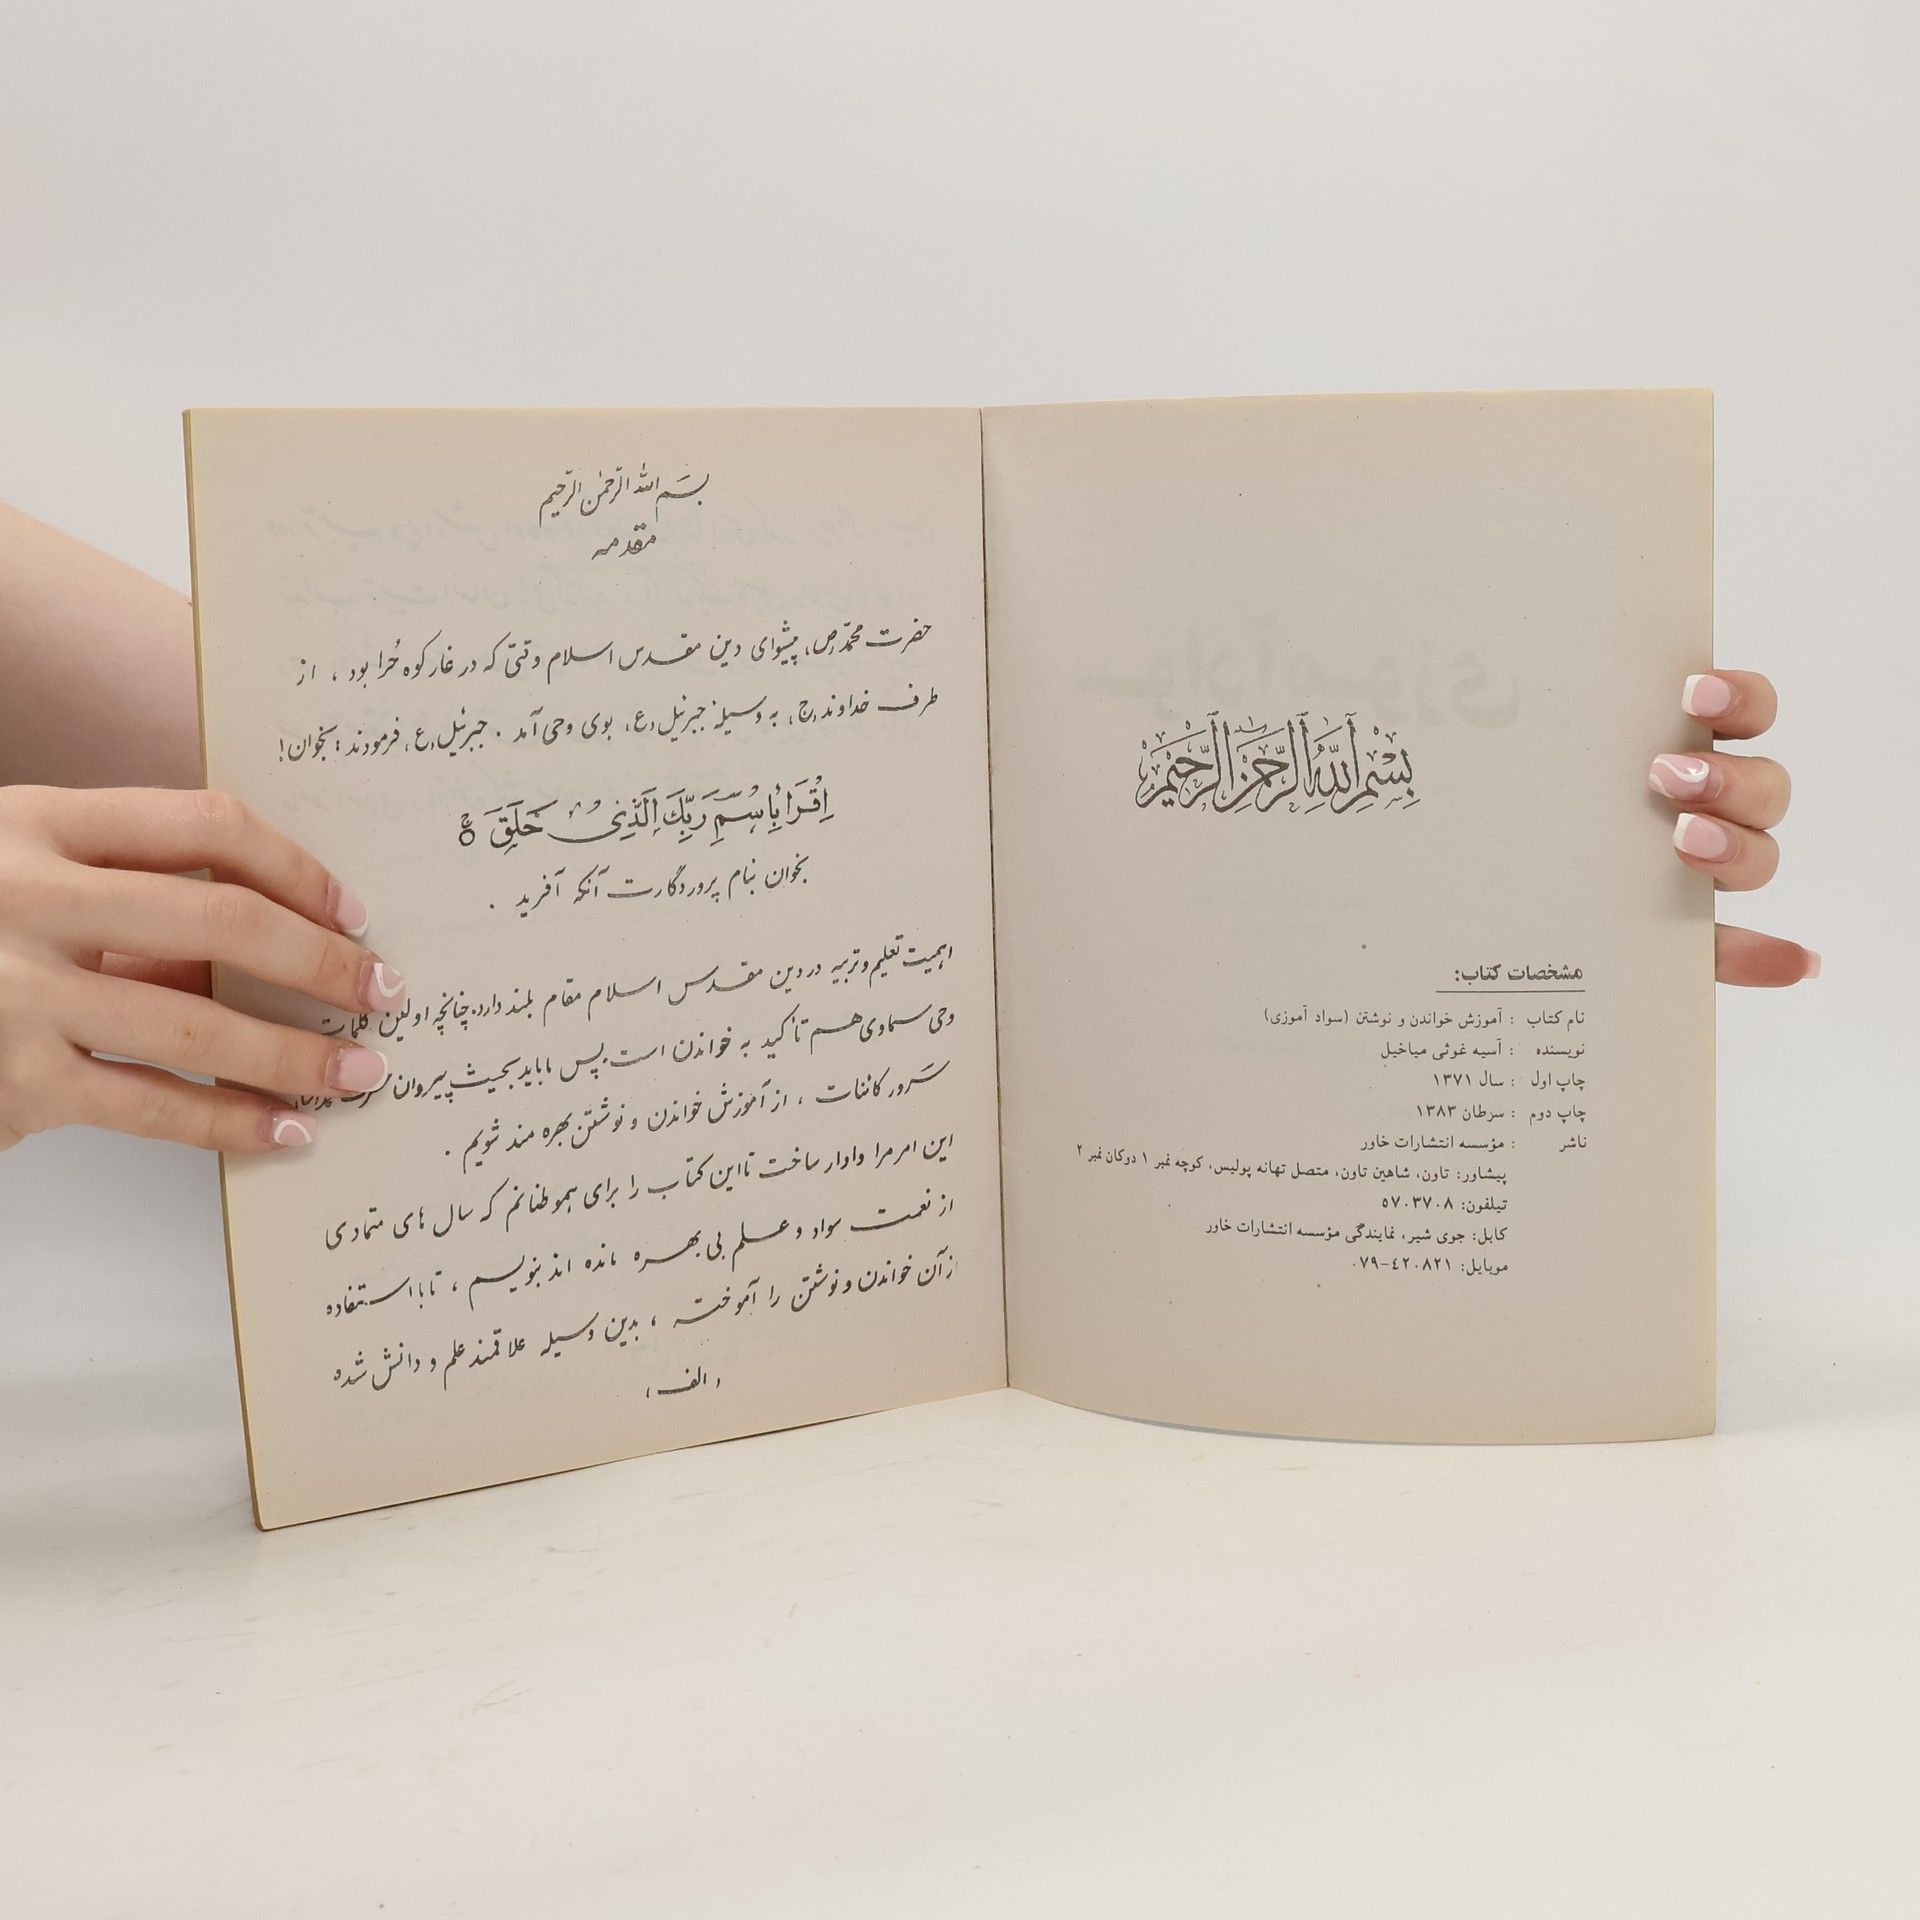 بِسْمِ ٱللَّهِ ٱلرَّحْمَنِ ٱلرَّحِيْمِ
مشخصات کتاب:
نام کتاب : آموزش خواندن و نوشتن (سواد آموزی)
نویسنده : آسیه غوثی میاخیل
چاپ اول : سال ۱۳۷۱
چاپ دوم : سرطان ۱۳۸۳
ناشر : مؤسسه انتشارات خاور
پیشاور: تاون، شاهین تاون، متصل تهانه پولیس، کوچه نمبر ۱ دوکان نمبر ۲
تیلفون: ۵۷۰۳۷۰۸
کابل: جوی شیر، نمایندگی مؤسسه انتشارات خاور
موبایل: ۰۷۹-٤۲۰۸۲۱
بسم الله الرحمن الرحیم
مقدمه
حضرت محمّد،ص، پیشوای دین مقدس اسلام وقتی که در غار کوه حُرا بود ، از
طرف خداوند،ج، به وسیلهٔ جبرئیل،ع، بوی وحی آمد . جبرئیل،ع، فرمودند : بخوان!
اِقْرَا بِاسْمِ رَبِّكَ الَّذِیْ خَلَقَ
بخوان بنام پروردگارت آنکه آفرید .
اهمیت تعلیم و تربیه در دین مقدس اسلام مقام بلند دارد. چنانچه اولین کلمات
وحی سماوی هم تأکید به خواندن است. پس ما باید بحیث پیروان
سَرور کائنات ، از آموزش خواندن و نوشتن بهره مند شویم .
این امر مرا وادار ساخت تا این کتاب را برای هموطنانم که سال های متمادی
از نعمت سواد و علم بی بهره مانده اند بنویسم ، تا با استفاده
از آن خواندن و نوشتن را آموخته ، بدین وسیله علاقمند علم و دانش شده
، الف ،